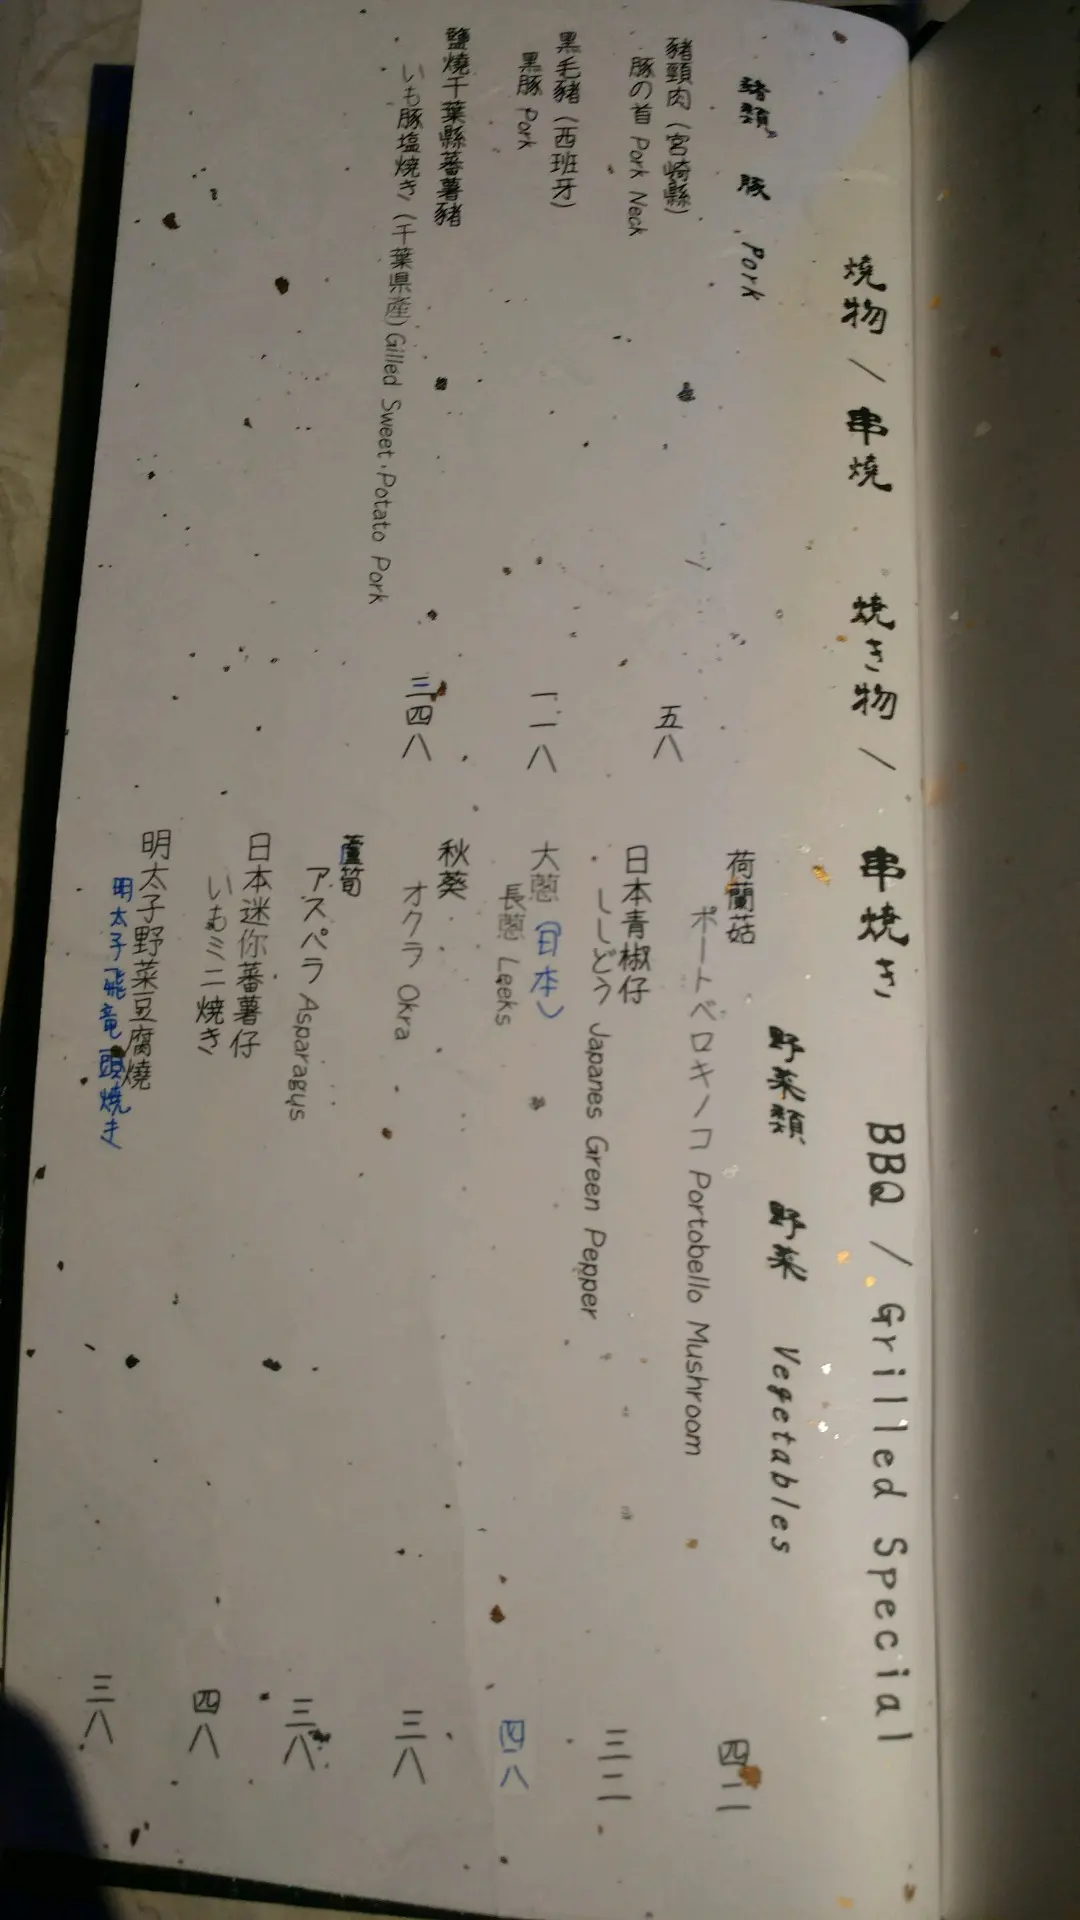 燒物 / 串燒 焼き物 / 串焼き BBQ / Grilled Special
豬類 豚 Pork
豬頸肉 (宮崎縣)
豚の首 Pork Neck
五八
黑毛豬 (西班牙)
黒豚 Pork
一一八
鹽燒千葉縣蕃薯豬
いも豚塩焼き (千葉県産) Gilled Sweet Potato Pork
三四八
野菜類 野菜 Vegetables
荷蘭菇
ポートベロキノコ Portobello Mushroom
四二
日本青椒仔
ししとう Japanes Green Pepper
三二
大蔥 (日本)
長蔥 Leeks
四八
秋葵
オクラ Okra
三八
蘆筍
アスペラ Asparagus
三八
日本迷你蕃薯仔
いもミニ焼き
四八
明太子野菜豆腐燒
明太子飛竜頭焼き
三八